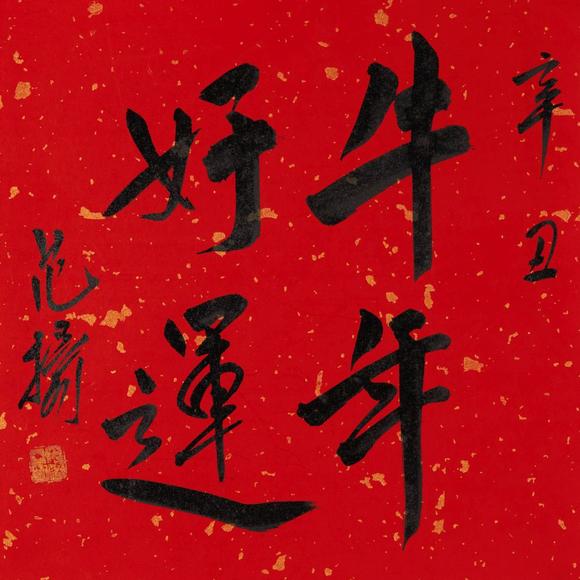 辛丑
牛年
好運
范撟